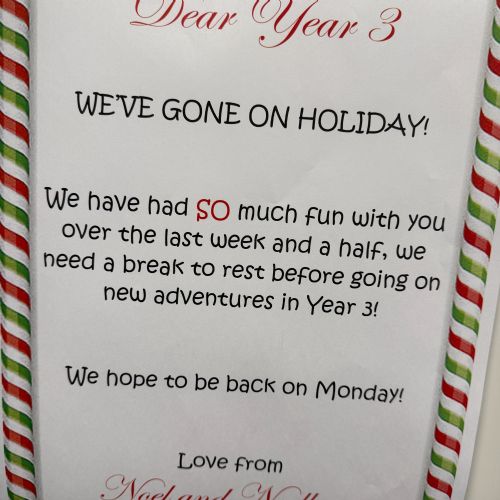 Dear Year 3
WE'VE GONE ON HOLIDAY!
We have had SO much fun with you
over the last week and a half, we
need a break to rest before going on
new adventures in Year 3!
We hope to be back on Monday!
Love from
Noel and